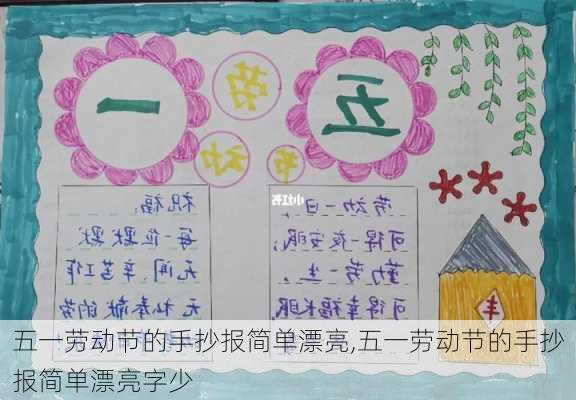 五一
劳动节
小红书
劳动一日,
可得一夜安眠;
勤劳一生,
可得幸福长眠
祝福,
每一位默默
无闻、辛苦工作
无私奉献的劳
丰
五一劳动节的手抄报简单漂亮,五一劳动节的手抄
报简单漂亮字少